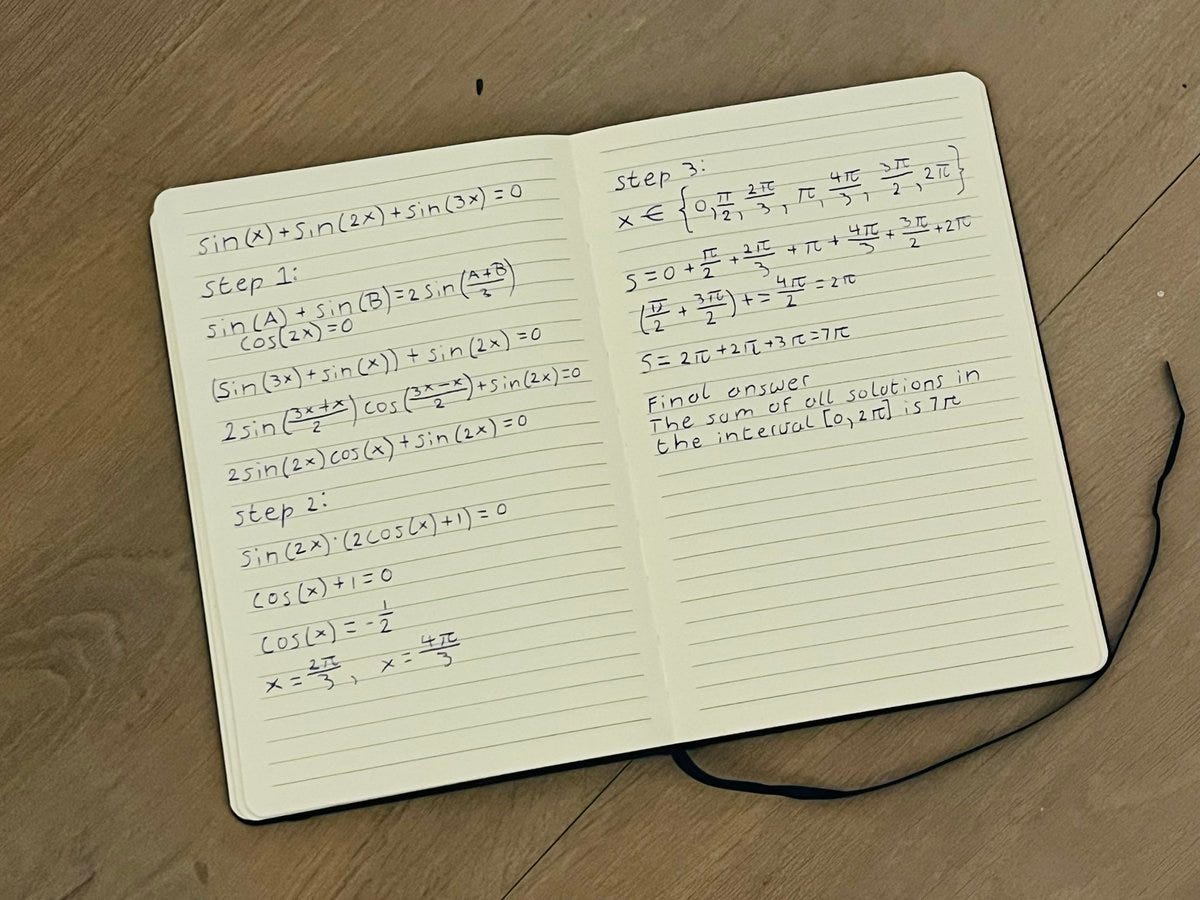 sin(x)+sin(2x)+sin(3x)=0
step 1:
sin(A)+sin(B)=2sin((A+B)/3)
cos(2x)=0
(sin(3x)+sin(x))+sin(2x)=0
2sin((3x+x)/2)cos((3x-x)/2)+sin(2x)=0
2sin(2x)cos(x)+sin(2x)=0
step 2:
sin(2x)·(2cos(x)+1)=0
cos(x)+1=0
cos(x)=-1/2
x=2π/3, x=4π/3
step 3:
x∈{0,π/2,2π/3,π,4π/3,3π/2,2π}
S=0+π/2+2π/3+π+4π/3+3π/2+2π
(π/2+3π/2)+=4π/2=2π
S=2π+2π+3π=7π
Final answer
The sum of all solutions in
the interval [0,2π] is 7π